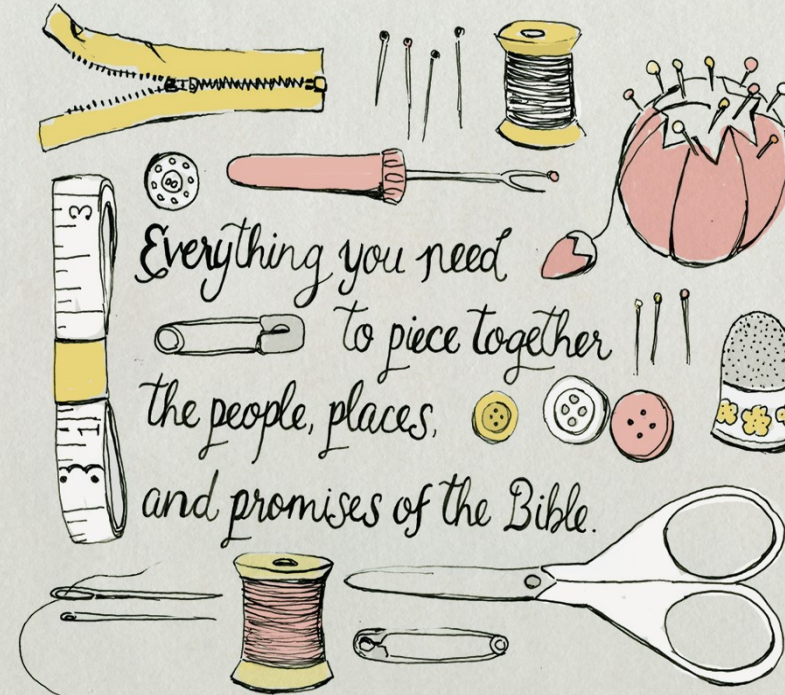 Everything you need
to piece together
the people, places,
and promises of the Bible.
3
11
8